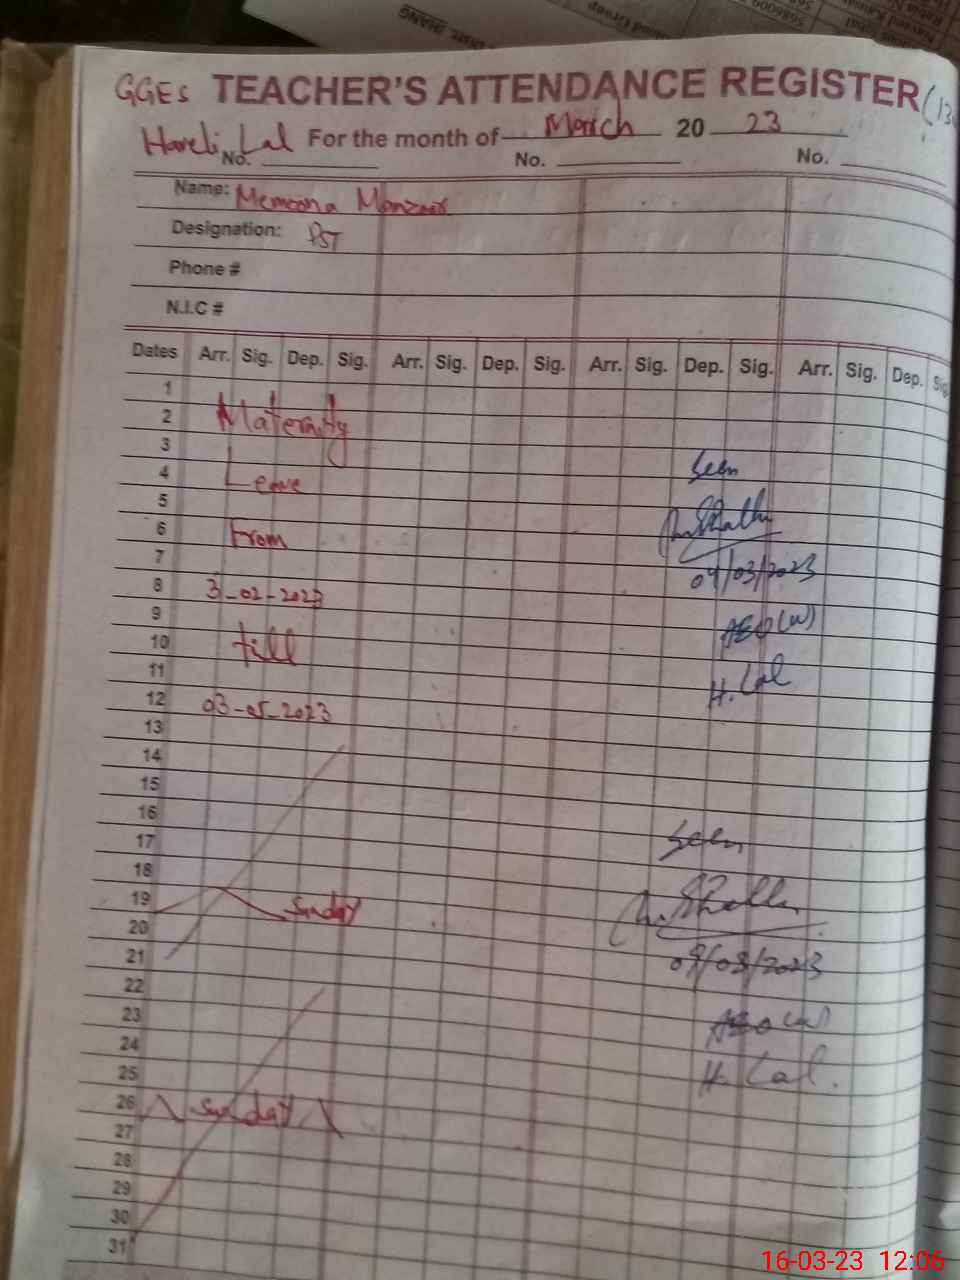 GGES TEACHER'S ATTENDANCE REGISTER
Haveli Lal For the month of March 20 23
No. No. No.
Name: Memoona Manzoor
Designation: PST
Phone #
N.I.C #
Dates Arr. Sig. Dep. Sig. Arr. Sig. Dep. Sig. Arr. Sig. Dep. Sig. Arr. Sig. Dep. Sig
1
2 Maternity
3
4 Leave Seen
5
6 From
7
8 3-02-2023 04/03/2023
9
10 till AEO(W)
11
12 03-05-2023 H. Lal
13
14
15
16
17 Seen
18
19 Sunday
20
21 09/03/2023
22
23 AEO (W)
24
25 H. Lal.
26 Sunday
27
28
29
30
31
16-03-23 12:06